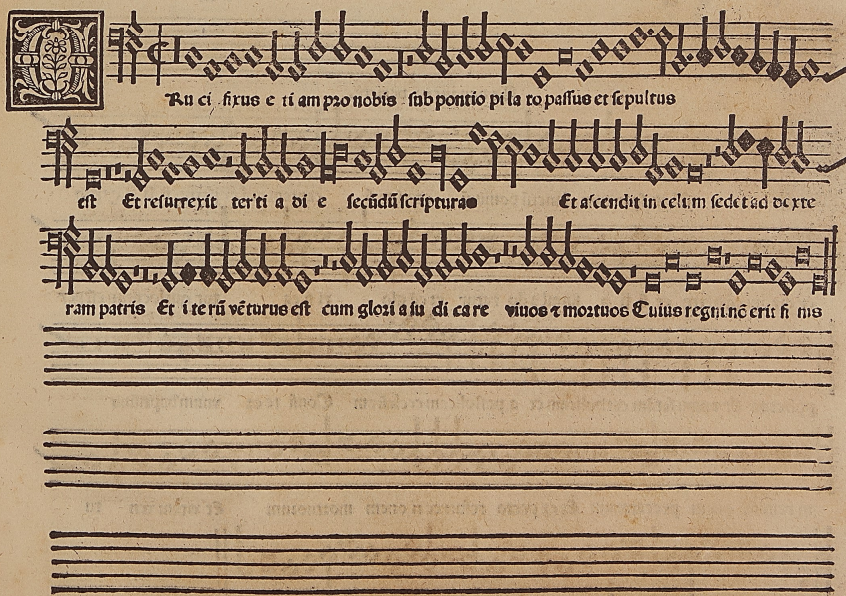 CRu ci fixus e ti am pro nobis sub pontio pi la to passus et sepultus
est Et resurrexit ter ti a di e secūdū scripturas Et ascendit in celum sedet ad dexte
ram patris Et i te rū vēturus est cum glori a iu di care viuos ⁊ mortuos Cuius regni nō erit fi nis